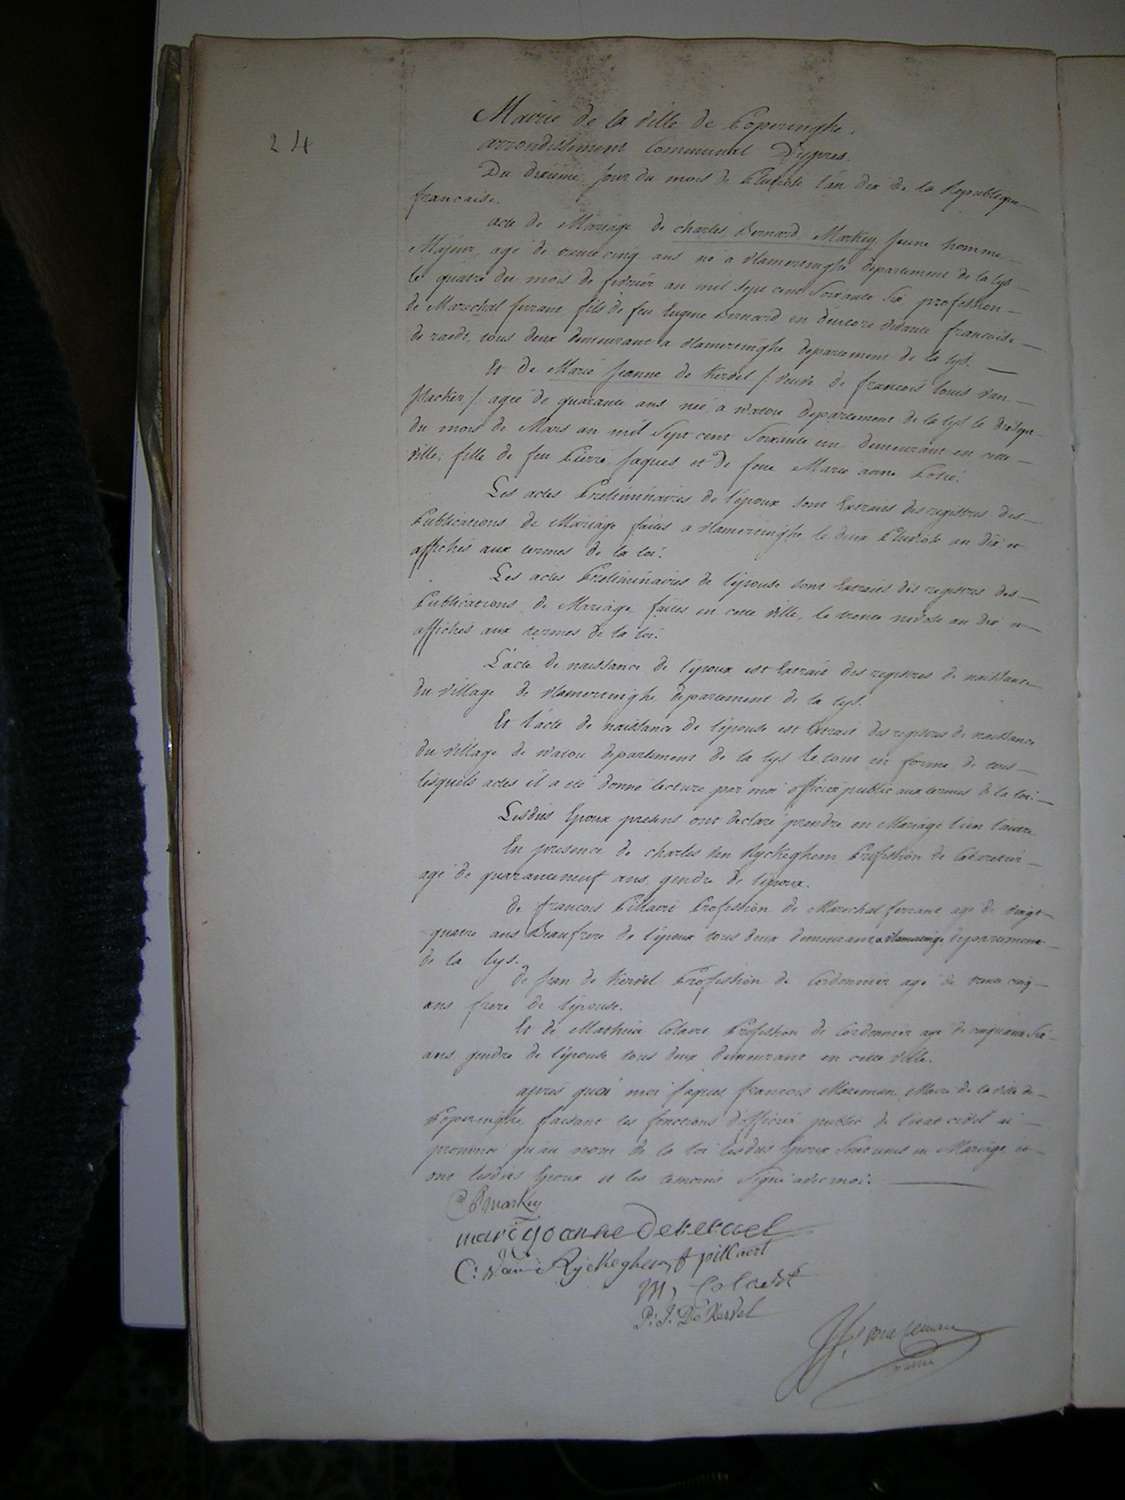 24
Mairie de la ville de Poperinghe.
arrondissement Communal D'ypres.
Du dixieme jour du mois de Pluviose l'an dix de la Republique
francaise.
acte de Mariage de charles Bernard Markey jeune homme
Majeur, agé de trente cinq ans né a vlamertinghe departement de la lys
le quatre du mois de fevrier an mil sept cent soixante six, profession
de Marechal ferrant fils de feu Eugene Bernard en encore vivante francoise
de raedt, tous deux demeurant a vlamertinghe departement de la lys.
Et de Marie Jeanne de Kervel / veuve de francois louis van
/ agée de quarante ans née a watou departement de la lys le
du mois de Mars an mil sept cent soixante un demeurant en cette
ville, fille de feu Pierre Jaques et de feue Marie anne
Les actes Preliminaires de l'époux sont Extraits des registres des
Publications de Mariage faites a vlamertinghe le deux Pluviose an dix et
affichés aux termes de la loi.
Les actes Preliminaires de l'épouse sont Extraits des registres des
Publications de Mariage faites en cette ville, le trente nivose an dix et
affichés aux termes de la loi.
L'acte de naissance de l'époux est Extrait des registres de naissance
du village de vlamertinghe departement de la lys.
Et l'acte de naissance de l'épouse est Extrait des registres de naissance
du village de watou departement de la lys le tout en forme, de tous
lesquels actes il a été donné lecture par moi officier public aux termes de la loi.
Lesdits Epoux presens ont declaré prendre en Mariage l'un l'autre
En presence de charles van Ryckeghem Profession de
agé de quaranteneuf ans, gendre de l'époux.
de francois Pillaert Profession de Marechal ferrant agé de vingt
quatre ans Beaufrere de l'époux tous deux demeurant a vlamertinge departement
de la lys.
de Jean de Kervel Profession de Cordonnier agé de trente cinq
ans frere de l'épouse.
Et de Mathieu Colaert Profession de cordonnier agé de cinquante six
ans gendre de l'épouse tous deux demeurant en cette ville.
après quoi moi Jaques francois Maieman, Maire de la ville de
Poperinghe faisant les fonctions d'officier public de l'état civil ai
prononcé qu'au nom de la loi lesdits Epoux sont unis en Mariage et
ont lesdits Epoux et les temoins signé avec moi.
C B markey
marie joanne De kervel
C: van Ryckeghem f pillaert
M, Colaert
P: J: De Kervel
maire